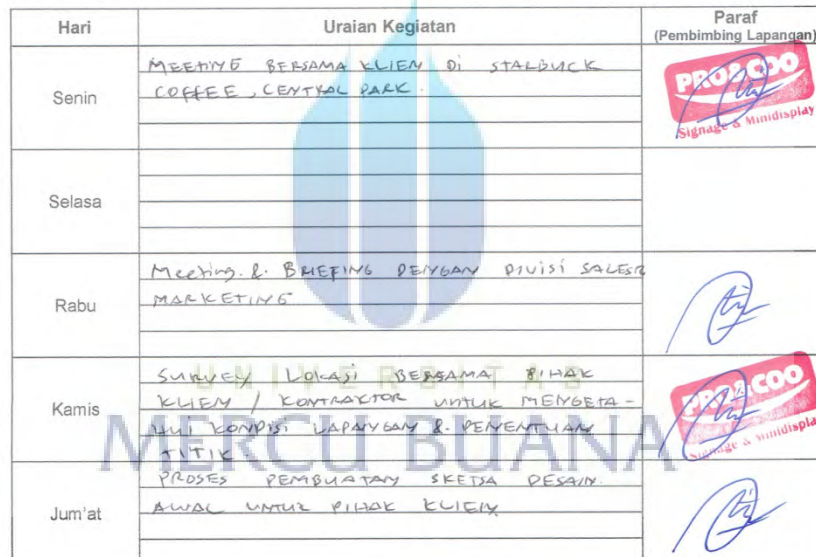 Hari Uraian Kegiatan Paraf
(Pembimbing Lapangan)
Senin
MEETING BERSAMA KLIEN Di STARBUCK
COFFEE, CENTRAL PARK.
PRO&COO
Signage & Minidisplay
Selasa
Rabu
Meeting & BRIEFING DENGAN DIVISI SALES&
MARKETING
Kamis
SURVEY LOKASI BERSAMA PIHAK
KLIEN / KONTRAKTOR UNTUK MENGETA-
HUI KONDISI LAPANGAN & PENENTUAN
TITIK.
PRO&COO
Signage & Minidisplay
UNIVERSITAS
MERCU BUANA
Jum'at
PROSES PEMBUATAN SKETSA DESAIN
AWAL UNTUK PIHAK KLIEN